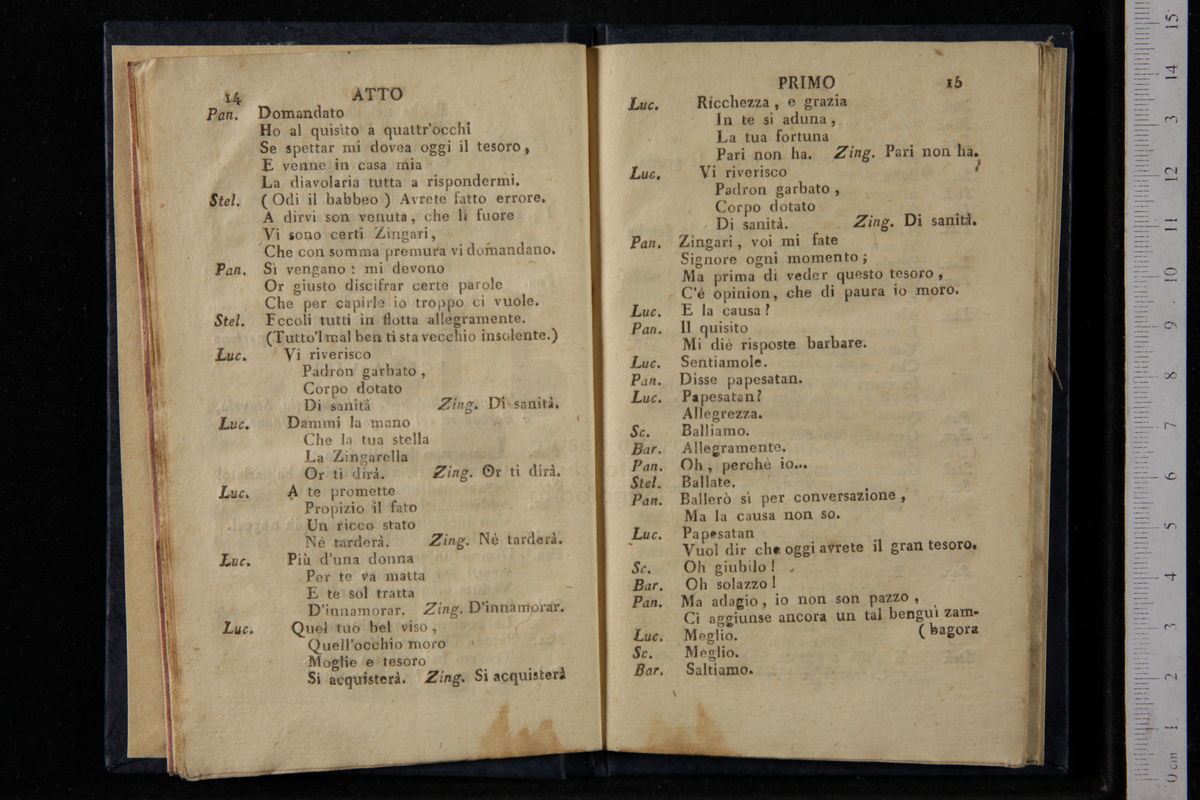 14 ATTO
Pan. Domandato
Ho al quisito a quattr'occhi
Se spettar mi dovea oggi il tesoro,
E venne in casa mia
La diavolaria tutta a rispondermi.
Stel. (Odi il babbeo) Avrete fatto errore.
A dirvi son venuta, che li fuore
Vi sono certi Zingari,
Che con somma premura vi domandano.
Pan. Si vengano: mi devono
Or giusto discifrar certe parole
Che per capirle io troppo ci vuole.
Stel. Eccoli tutti in flotta allegramente.
(Tutto'l mal ben ti sta vecchio insolente.)
Luc. Vi riverisco
Padron garbato,
Corpo dotato
Di sanità Zing. Di sanità.
Luc. Dammi la mano
Che la tua stella
La Zingarella
Or ti dirà. Zing. Or ti dirà.
Luc. A te promette
Propizio il fato
Un ricco stato
Nè tarderà. Zing. Nè tarderà.
Luc. Più d'una donna
Per te va matta
E te sol tratta
D'innamorar. Zing. D'innamorar.
Luc. Quel tuo bel viso,
Quell'occhio moro
Moglie e tesoro
Si acquisterà. Zing. Si acquisterà
PRIMO 15
Luc. Ricchezza, e grazia
In te si aduna,
La tua fortuna
Pari non ha. Zing. Pari non ha.
Luc. Vi riverisco
Padron garbato,
Corpo dotato
Di sanità. Zing. Di sanità.
Pan. Zingari, voi mi fate
Signore ogni momento;
Ma prima di veder questo tesoro,
C'è opinion, che di paura io moro.
Luc. E la causa?
Pan. Il quisito
Mi diè risposte barbare.
Luc. Sentiamole.
Pan. Disse papesatan.
Luc. Papesatan?
Allegrezza.
Sc. Balliamo.
Bar. Allegramente.
Pan. Oh, perchè io...
Stel. Ballate.
Pan. Ballerò sì per conversazione,
Ma la causa non so.
Luc. Papesatan
Vuol dir che oggi avrete il gran tesoro.
Sc. Oh giubilo!
Bar. Oh solazzo!
Pan. Ma adagio, io non son pazzo,
Ci aggiunse ancora un tal benguì zam-
Luc. Meglio. (bagora
Sc. Meglio.
Bar. Saltiamo.
0 cm 1 2 3 4 5 6 7 8 9 10 11 12 3 14 15